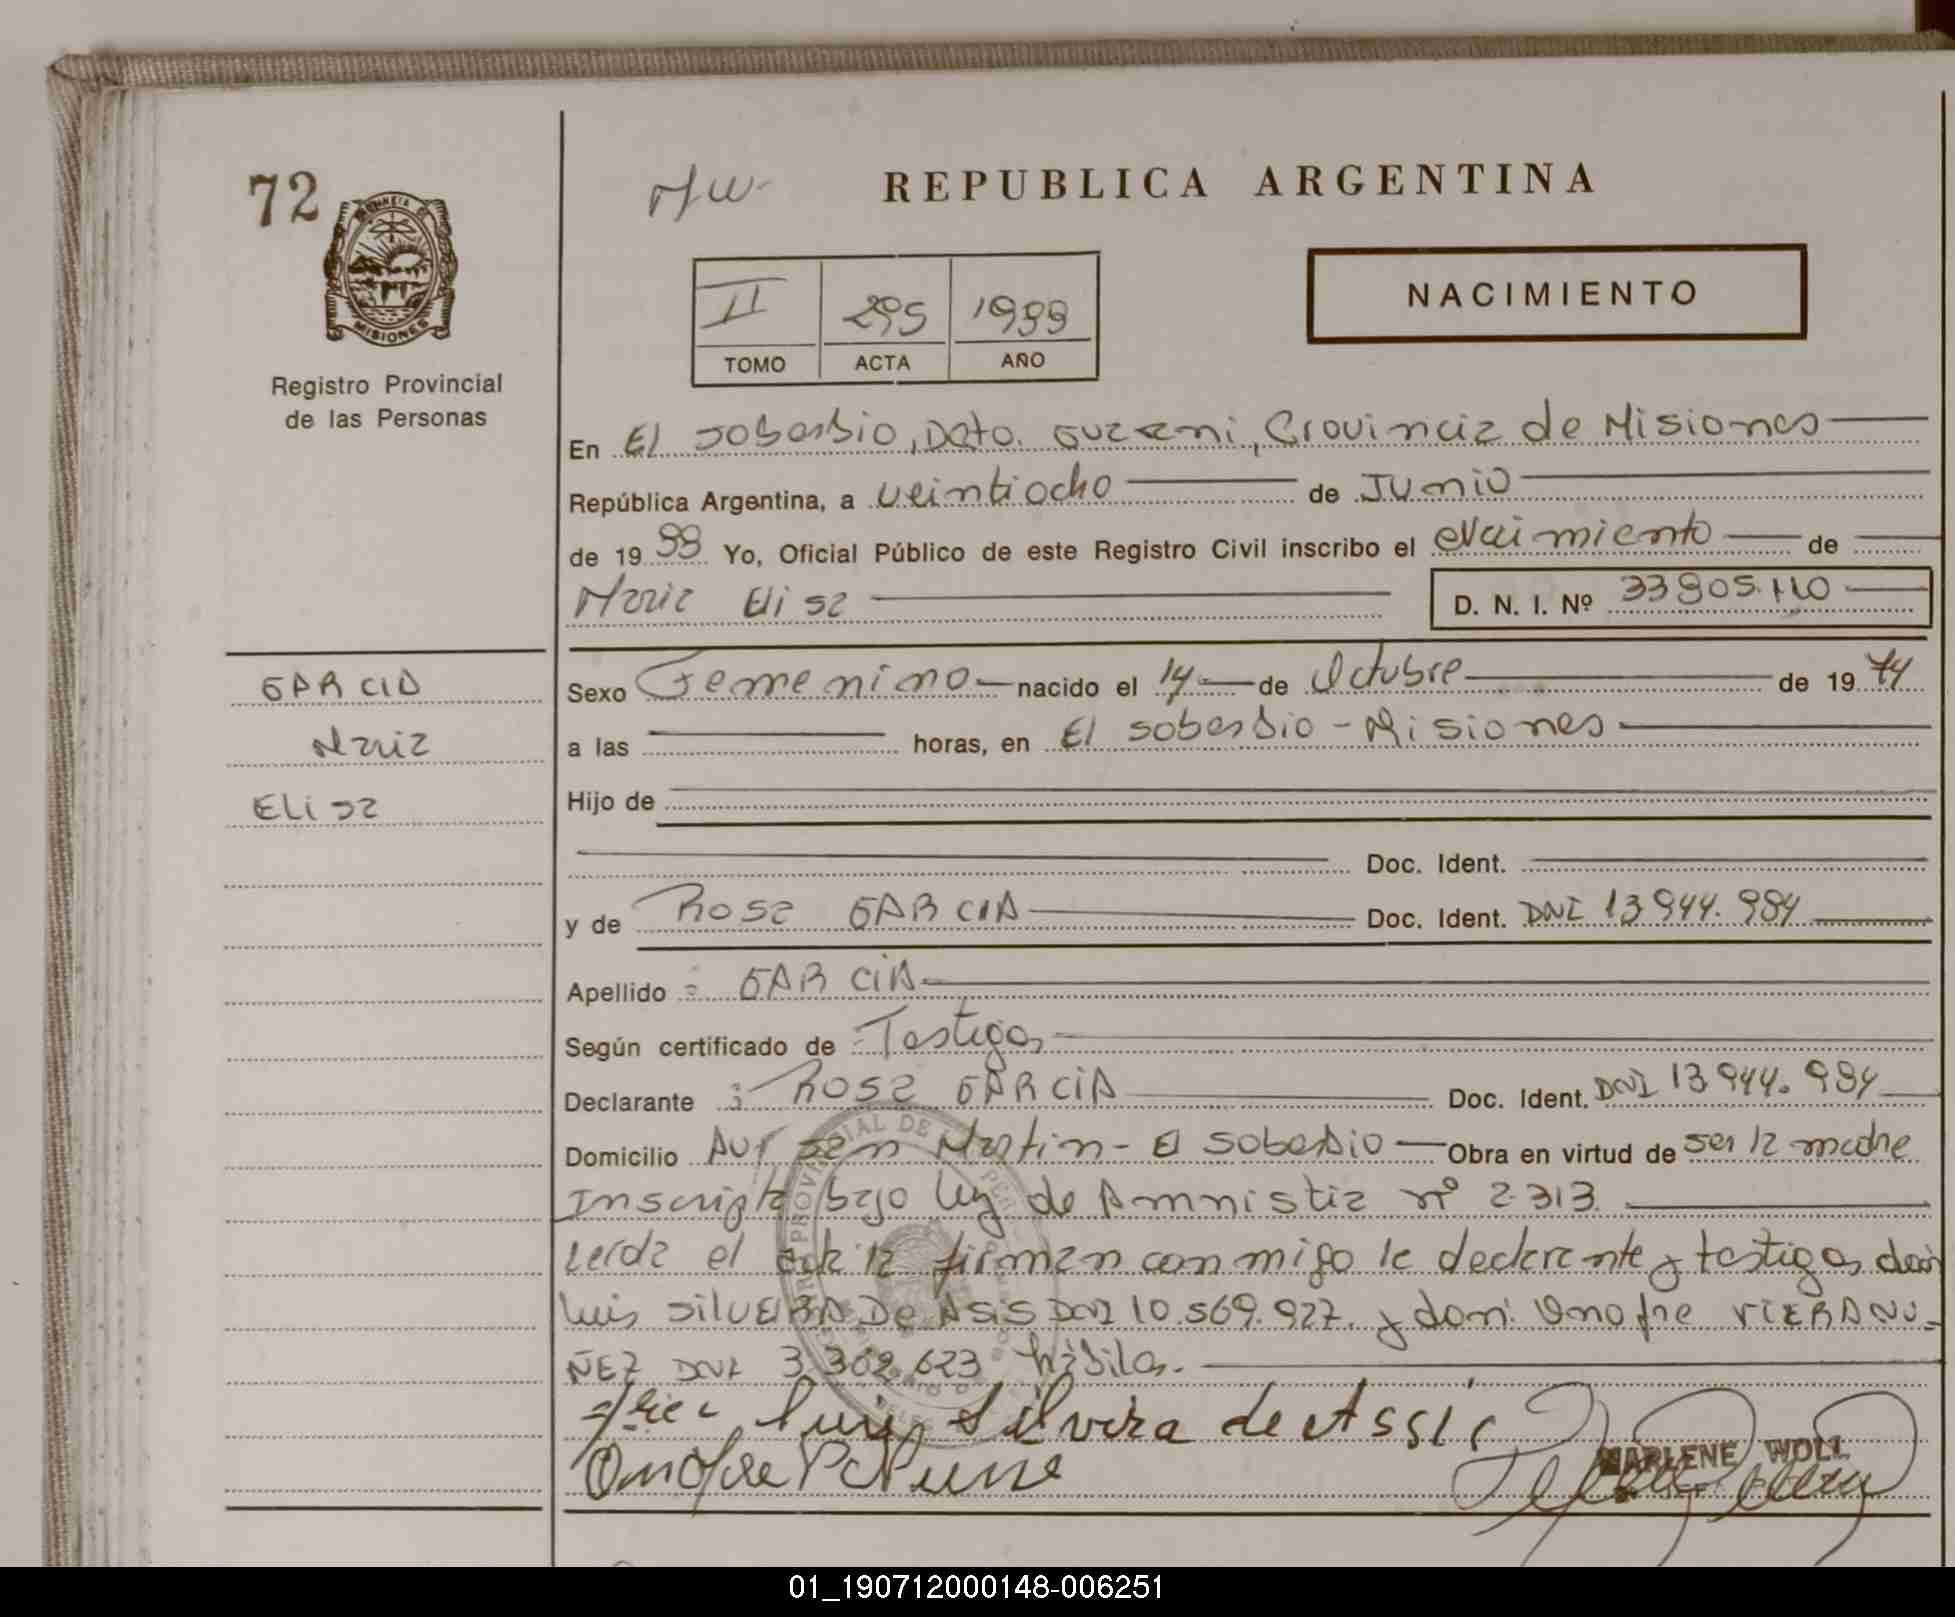 72
REPUBLICA ARGENTINA
MISIONES
Registro Provincial
de las Personas
II 295 1988
TOMO ACTA AÑO
NACIMIENTO
En El Soberbio, Dpto. Guarani, Provincia de Misiones
República Argentina, a veintiocho de Junio
de 19 88 Yo, Oficial Público de este Registro Civil inscribo el Nacimiento de
Maria Elisa D. N. I. Nº 33.905.110
GARCIA
Maria
Elisa
Sexo Femenino nacido el 14 de Octubre de 19 74
a las horas, en El Soberbio - Misiones
Hijo de
Doc. Ident.
y de Rosa GARCIA Doc. Ident. DNI 13.944.984
Apellido : GARCIA
Según certificado de : Testigos
Declarante : Rosa GARCIA Doc. Ident. DNI 13.944.984
Domicilio Av. San Martin - El Soberbio Obra en virtud de ser la madre
Inscripta bajo ley de Amnistia nº 2.313.
Leida el acta la firman conmigo la declarante y testigos don
Luis SILVEIRA De ASIS DNI 10.569.927. y don: Onofre VIERA NU-
ÑEZ DNI 3.302.623 hábiles.
Luis Silvera de Assis
Onofre
MARLENE WOLL
01_190712000148-006251